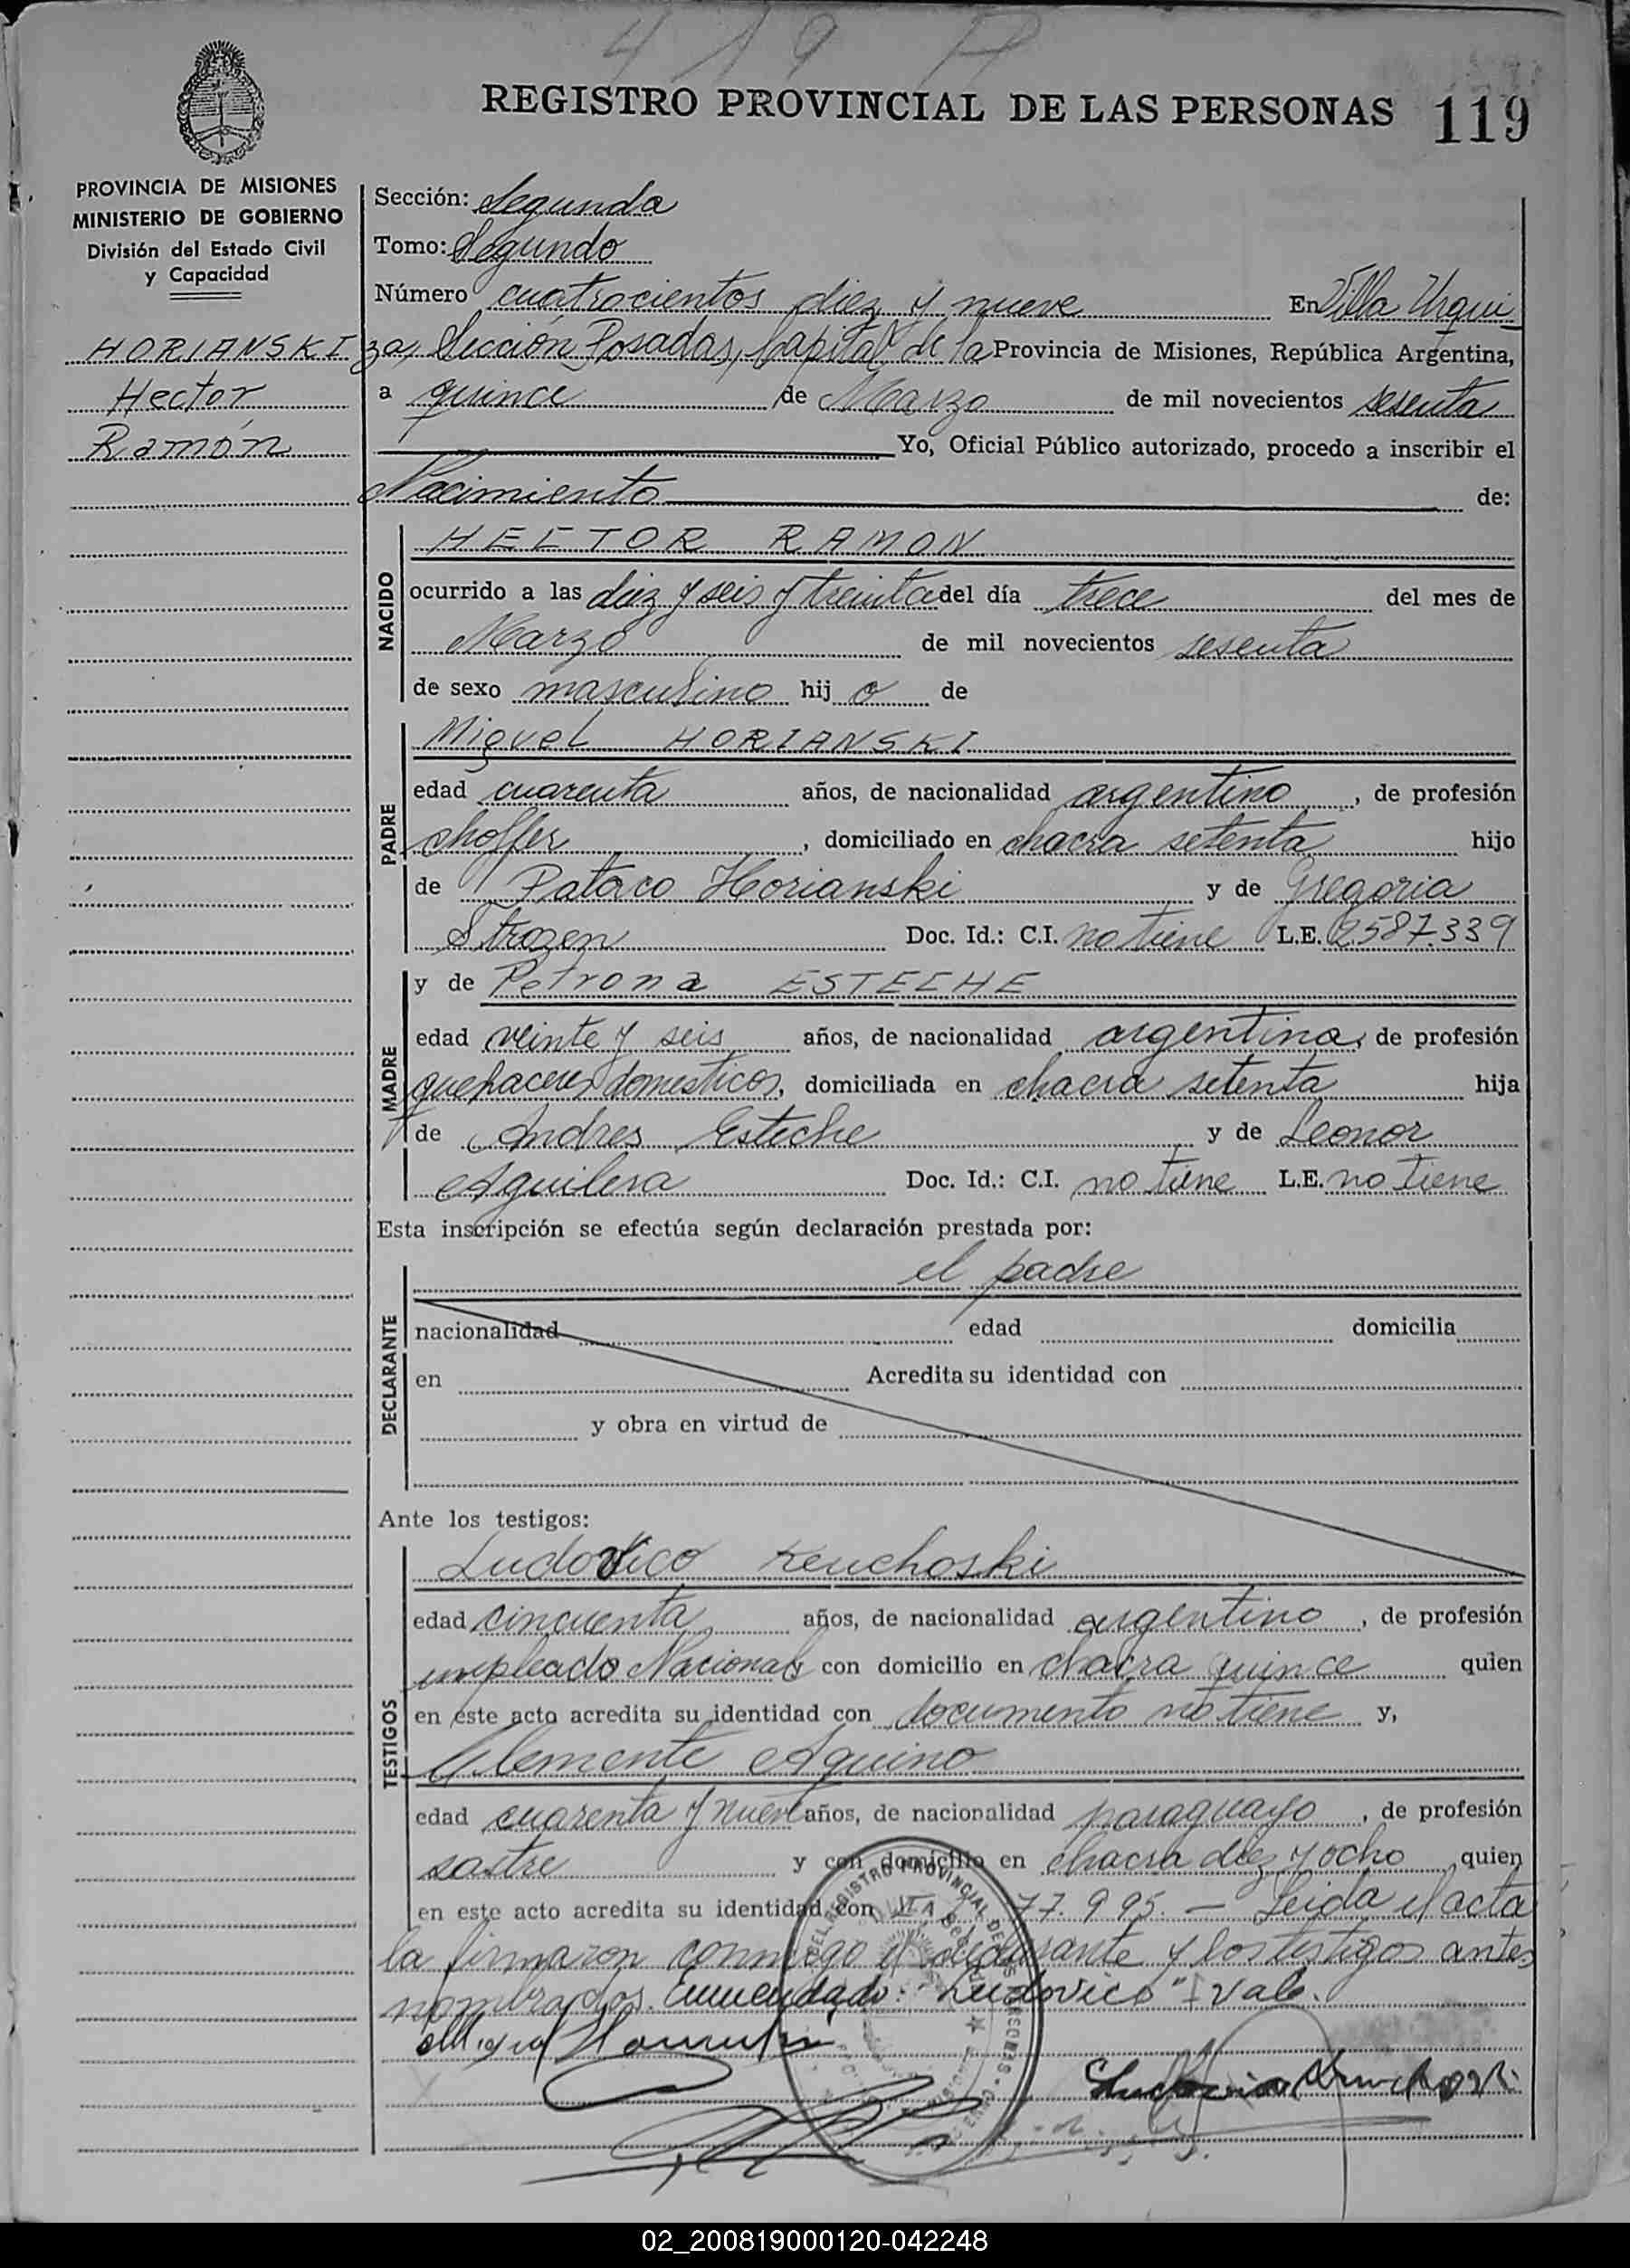 419 A
REGISTRO PROVINCIAL DE LAS PERSONAS 119
PROVINCIA DE MISIONES
MINISTERIO DE GOBIERNO
División del Estado Civil
y Capacidad
HORIANSKI
Hector
Ramón
Sección: Segunda
Tomo: Segundo
Número cuatrocientos diez y nueve En Villa Urqui
za, Sección Posadas, Capital de la Provincia de Misiones, República Argentina,
a quince de Marzo de mil novecientos sesenta
Yo, Oficial Público autorizado, procedo a inscribir el
Nacimiento de:
NACIDO
HECTOR RAMON
ocurrido a las diez y seis y treinta del día trece del mes de
Marzo de mil novecientos sesenta
de sexo masculino hijo de
PADRE
Miguel HORIANSKI
edad cuarenta años, de nacionalidad argentino, de profesión
choffer, domiciliado en chacra setenta hijo
de Pataco Horianski y de Gregoria
Strozen Doc. Id.: C.I. no tiene L.E. 2.587.339
MADRE
y de Petrona ESTECHE
edad veinte y seis años, de nacionalidad argentina, de profesión
quehaceres domesticos, domiciliada en chacra setenta hija
de Andres Esteche y de Leonor
Aguilera Doc. Id.: C.I. no tiene L.E. no tiene
Esta inscripción se efectúa según declaración prestada por:
DECLARANTE
el padre
nacionalidad edad domicilia
en Acredita su identidad con
y obra en virtud de
Ante los testigos:
TESTIGOS
Ludovico Keuchoski
edad cincuenta años, de nacionalidad argentino, de profesión
empleado Nacional y con domicilio en chacra quince quien
en este acto acredita su identidad con documento no tiene y,
Clemente Aquino
edad cuarenta y nueve años, de nacionalidad paraguayo, de profesión
sastre y con domicilio en chacra diez y ocho quien
en este acto acredita su identidad con 77.995. — Leida el acta
la firmaron conmigo el declarante y los testigos antes
nombrados. Enmendado: "Ludovico" Vale.
02_200819000120-042248